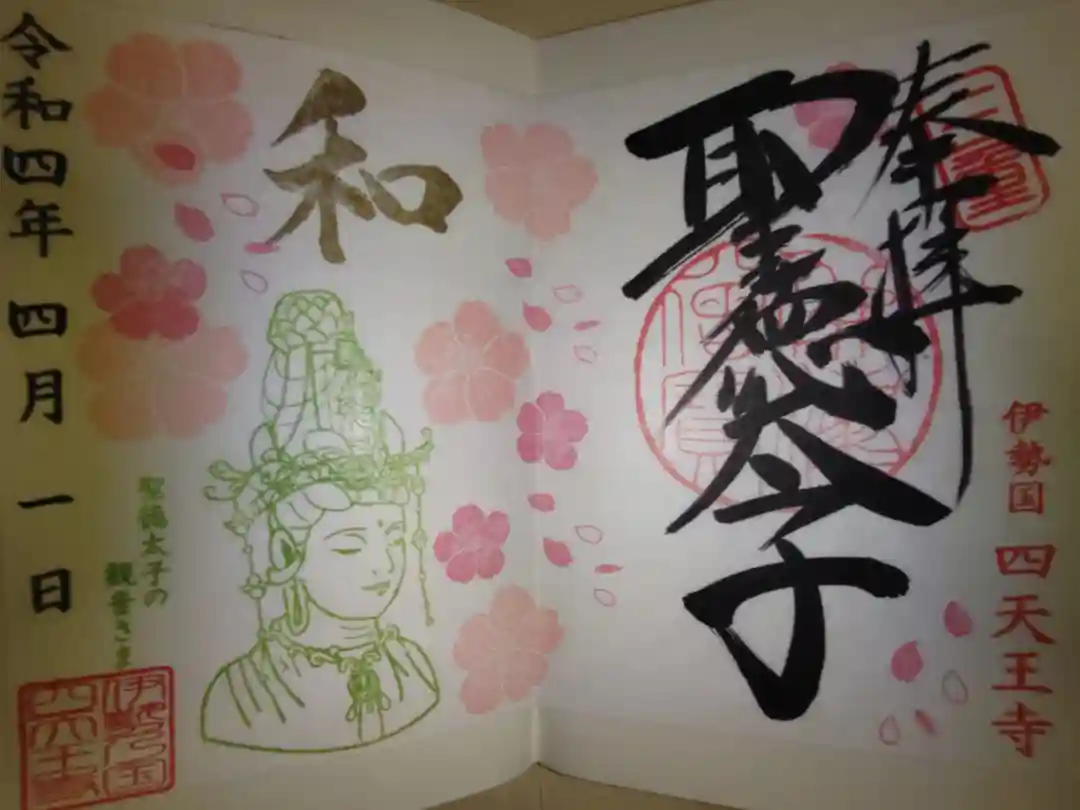 奉拝
聖徳太子
伊勢国 四天王寺
和
聖徳太子の
観音さま
令和四年 四月 一日